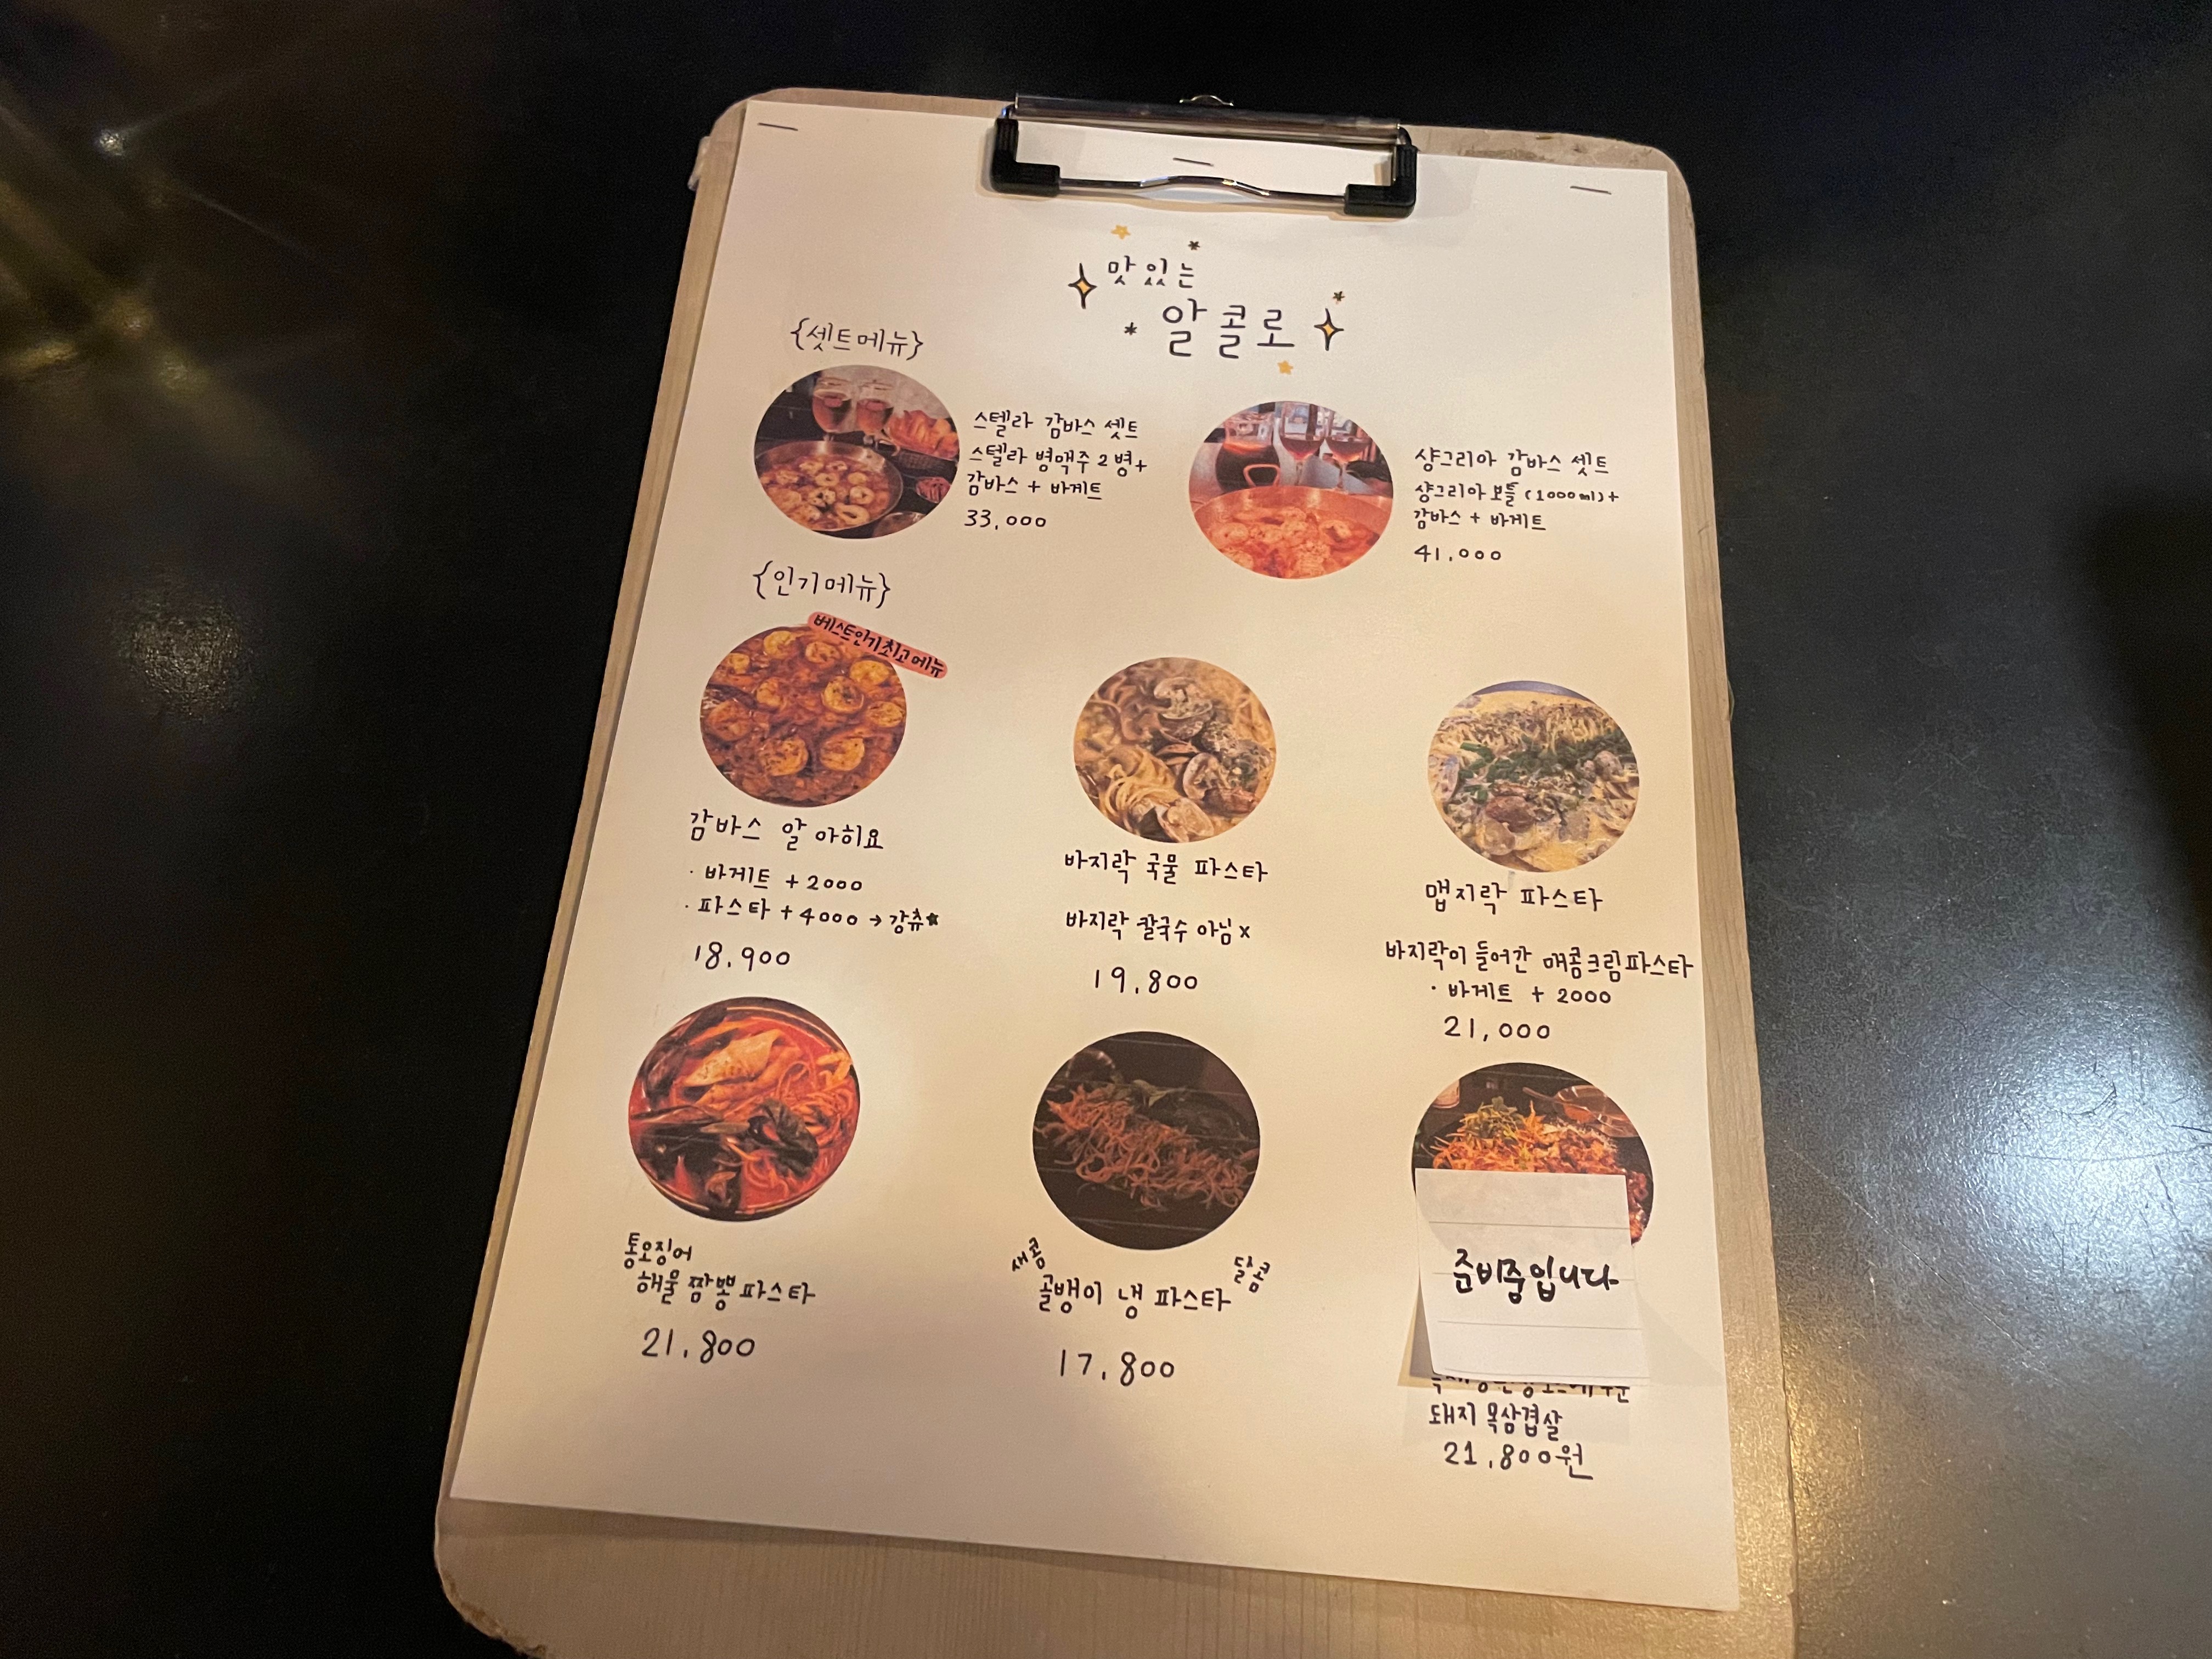 맛있는
알콜로
{셋트메뉴}
스텔라 감바스 셋트
스텔라 병맥주 2병+
감바스 + 바게트
33,000
샹그리아 감바스 셋트
샹그리아 보틀 (1000ml)+
감바스 + 바게트
41,000
{인기메뉴}
베스트인기최고메뉴
감바스 알 아히요
· 바게트 +2000
· 파스타 +4000 → 강츄★
18,900
바지락 국물 파스타
바지락 칼국수 아님x
19,800
맵지락 파스타
바지락이 들어간 매콤크림파스타
· 바게트 + 2000
21,000
통오징어
해물 짬뽕 파스타
21,800
새콤
달콤
골뱅이 냉 파스타
17,800
준비중입니다
돼지 목삼겹살
21,800원